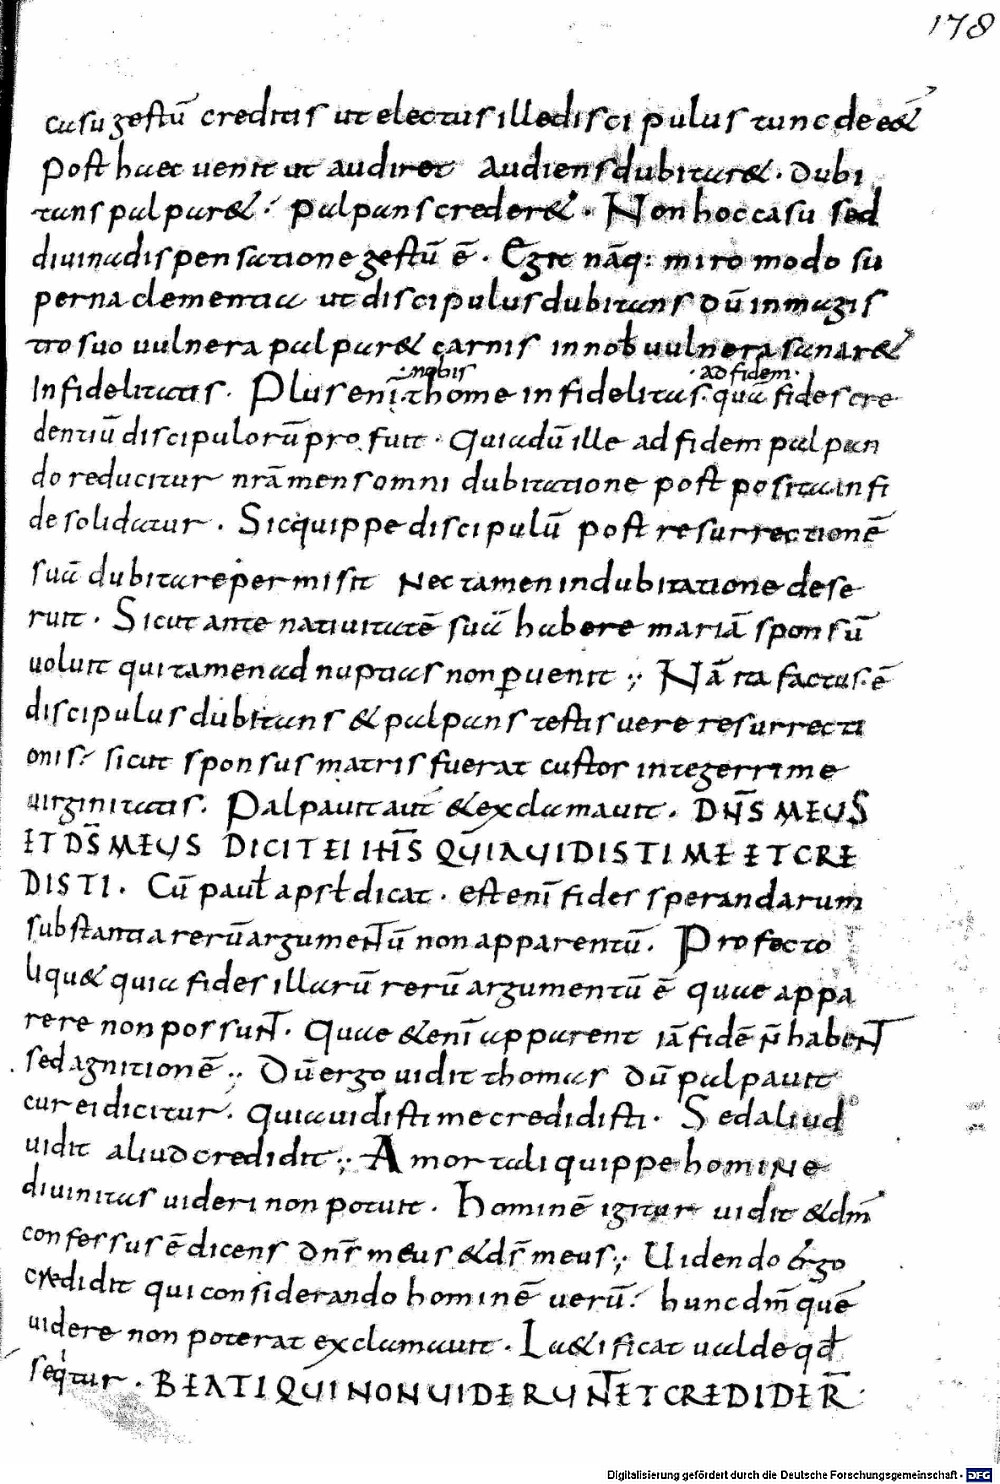 178
casu gestū creditis ut electus ille discipulus tunc dee&̄
Post haec venit ut audiret Audiens dubitar& · Dubi
tans palpar& · Palpans creder& · Non hoc casu sed
divina dispensatione gestū ē · Egit nāq: miro modo su
perna clementia ut discipulus dubitans dū in magis
tro suo vulnera palpar& carnis in nob̄ vulnera sanar&
·nobis ·ad fidem·
Infidelitatis. Plus enī thome infidelitas. quā fides cre
dentiū discipulorū pro fuit · Quia dū ille ad fidem palpan
do reducitur nr̄a mens omni dubitatione post posita in fi
de solidatur. Sic quippe discipulū post resurrectionē
suā dubitare permisit Nec tamen in dubitatione dese
ruit. Sicut ante nativitatē suā habere mariā sponsū
voluit qui tamen ad nuptias non p̄venit ;, Nā ita factus ē
discipulus dubitans & palpans testis vere resurrecti
onis: sicut sponsus matris fuerat custor integerrime
virginitatis. Palpavit aut̄ & exclamavit. DN̄S MEUS
ET DS̄ MEUS DICIT EI IHS̄ QUIA VIDISTI ME ET CRE
DISTI. Cū paul̄ apsl̄ dicat · est enī fides sperandarum
substantia rerū argumentū non apparentū. Profecto
liqu& quia fides illarū rerū argumentū ē quae appa
rere non possunt. Quae &enī apparent iā fidē n̄ habent
sed agnitionē ;, Dū ergo vidit thomas dū palpavit
cur ei dicitur. quia vidisti me credidisti. Sed aliud
vidit aliud credidit ;, A mortali quippe homine
divinitas videri non potuit. Hominē igitur vidit & dm̄
confessus ē dicens dn̄s meus & ds̄ meus ;, Videndo ergo
credidit qui considerando hominē verū: hunc dm̄ quē
videre non poterat exclamavit. La&ificat valde qd̄
seqitur. BEATI QUI NON VIDERUNT ET CREDIDER̄
Digitalisierung gefördert durch die Deutsche Forschungsgemeinschaft - DFG